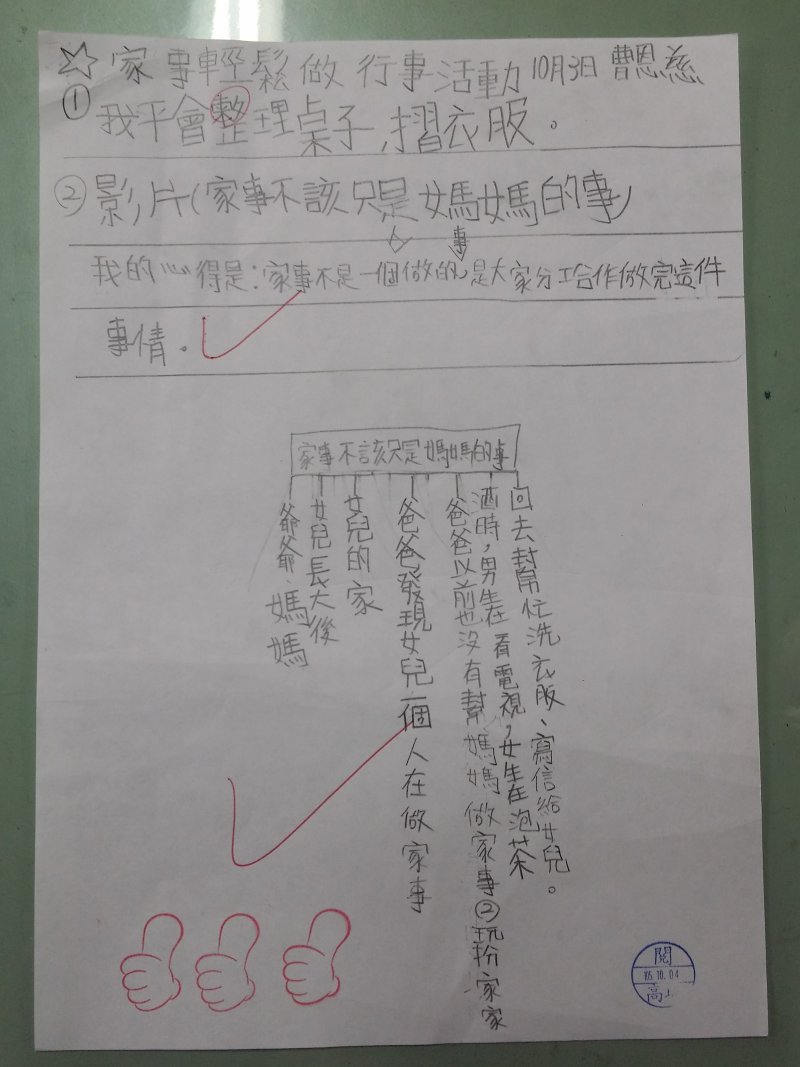 ☆ 家事輕鬆做 行事活動 10月3日 曹恩慈
① 我平會整理桌子,摺衣服。
② 影片(家事不該只是媽媽的事)
人 事
我的心得是:家事不是一個做的,是大家分工合作做完這件
事情。
家事不該只是媽媽的事
爺爺、媽媽
女兒長大後
女兒的家
爸爸發現女兒一個人在做家事
爸爸以前也沒有幫媽媽做家事②玩扮家家
酒時,男生在看電視,女生在泡茶
回去幫忙洗衣服、寫信給女兒。
閱
105.10.04
高